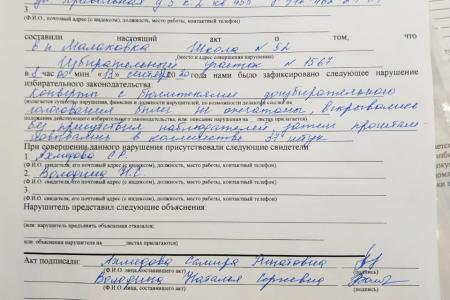 3.
(Ф.И.О., почтовый адрес (с индексом), должность, место работы, контактный телефон)
составили настоящий акт о том, что
в п. Малаховка Школа N 52
(место и адрес совершения нарушения)
Избирательный участок N 1567
в 8 час 00 мин «13» сентября 2020 года нами было зафиксировано следующее нарушение
избирательного законодательства
Конверты с бюллетенями доизбирательного
голосования были не опечатаны, вскрывались
положения действующего избирательного законодательства; или: описание нарушения на листах прилагается)
без присутствия наблюдателей затем проштам-
повывались в количестве 374 штук
При совершении данного нарушения присутствовали свидетели
1. Ахмедова С.Р.
(Ф.И.О. свидетеля, его почтовый адрес (с индексом), должность, место работы, контактный телефон)
2. Володина Н.С.
(Ф.И.О. свидетеля, его почтовый адрес (с индексом), должность, место работы, контактный телефон)
3.
(Ф.И.О. свидетеля, его почтовый адрес (с индексом), должность, место работы, контактный телефон)
Нарушитель представил следующие объяснения:
(или: нарушитель предъявить объяснения отказался;
или: объяснения нарушителя на листах прилагаются)
Акт подписали: Ахмедова Самира Ринатовна
(Ф.И.О. лица, составившего акт) (подпись)
Володина Наталья Сергеевна
(Ф.И.О. лица, составившего акт) (подпись)